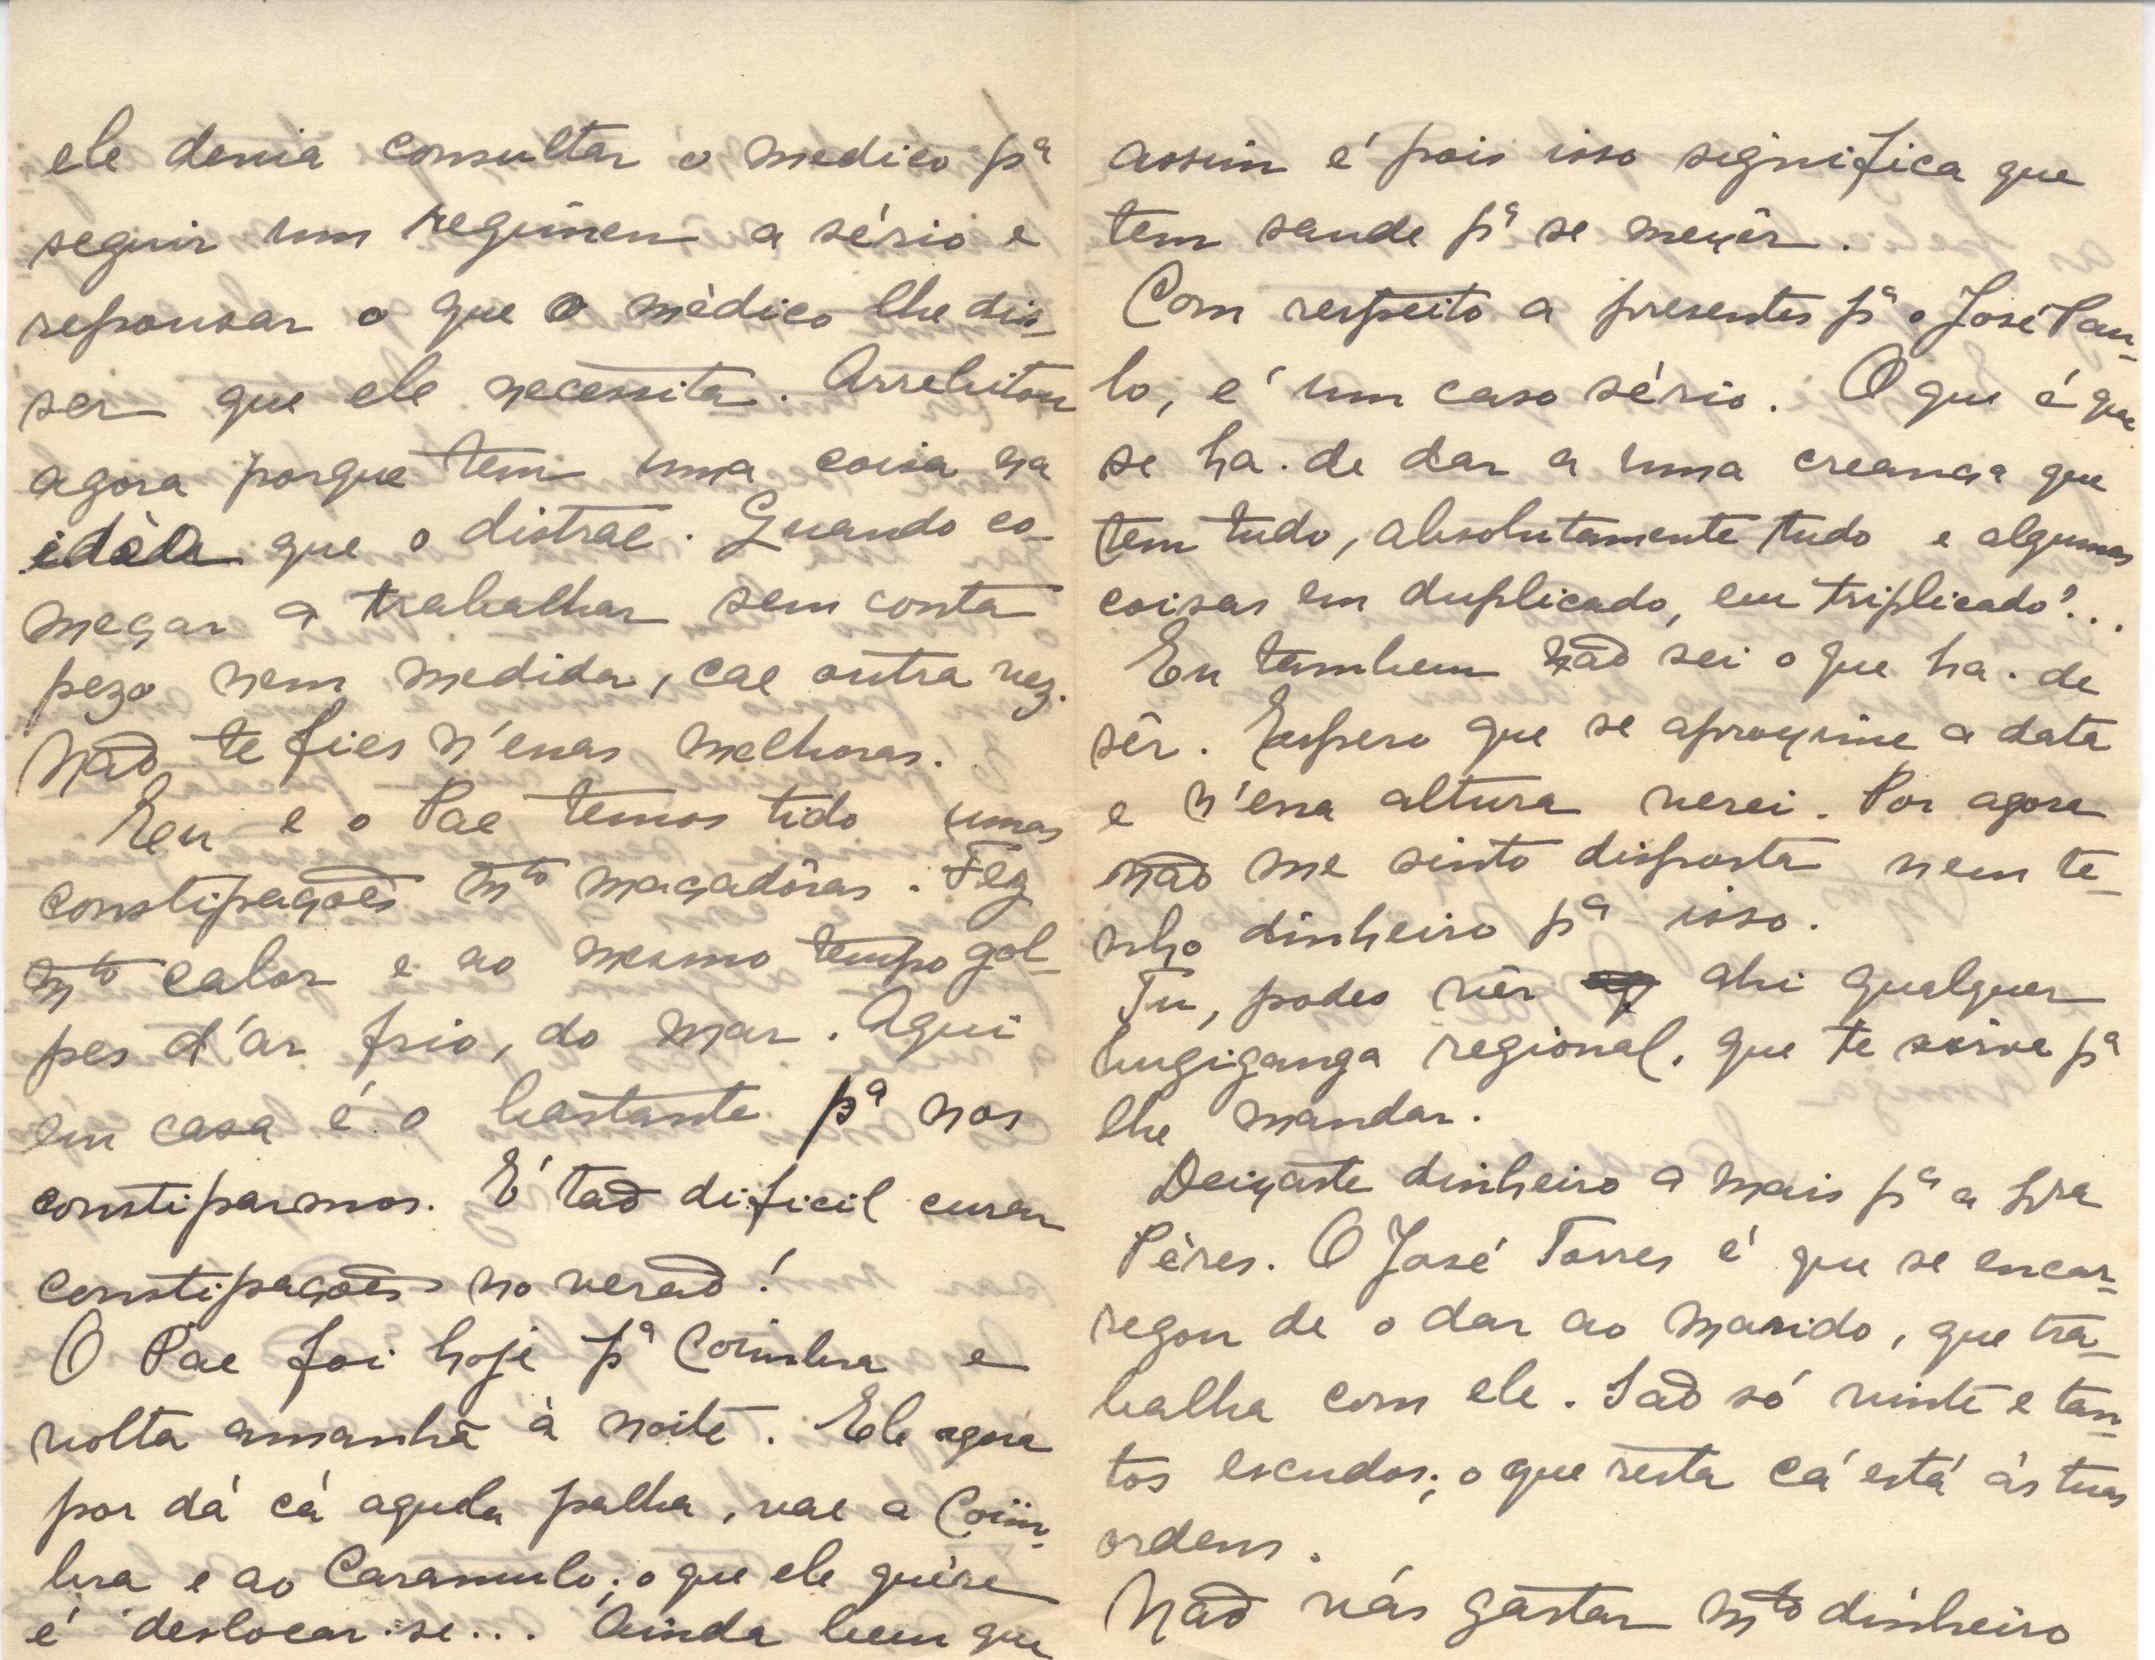 ele devia consultar o medico pª
seguir um regimen a sério e
repousar o que o mèdico lhe dis-
ser que ele necessita. Arrebitou
agora porque tem uma coisa na
idèa que o distrae. Quando co-
meçar a trabalhar sem conta
pezo nem medida, cae outra vez.
Não te fies n'essas melhoras.
Eu e o Pae temos tido umas
constipações mto maçadôras. Fez
mto calor e ao mesmo tempo gol-
pes d'ar frio, do mar. Aqui
em casa é o bastante pª nos
constiparmos. É tão dificil curar
constipações no verão!
O Pae foi hoje pª Coimbra e
volta amanhã à noite. Ele agora
por dá cá aquela palha, vae a Coim-
bra e ao Caramulo; o que ele quére
é deslocar-se... Ainda bem que
assim é pois isso significa que
tem saude pª se mexêr.
Com respeito a presentes pª o José Pau-
lo, é um caso sério. O que é que
se ha-de dar a uma creança que
tem tudo, absolutamente tudo e algumas
coisas em duplicado, em triplicado?...
Eu tambem não sei o que ha-de
sêr. Espero que se aproxime a data
e n'essa altura verei. Por agora
não me sinto disposta nem te-
nho dinheiro pª isso.
Tu, podes vêr ahi qualquer
bugiganga regional, que te sirva pª
lhe mandar.
Deixaste dinheiro a mais pª a Sra
Pères. O José Torres é que se encar-
regou de o dar ao marido, que tra-
balha com ele. São só vinte e tan-
tos escudos; o que resta cá está ás tuas
ordens.
Não vás gastar mto dinheiro